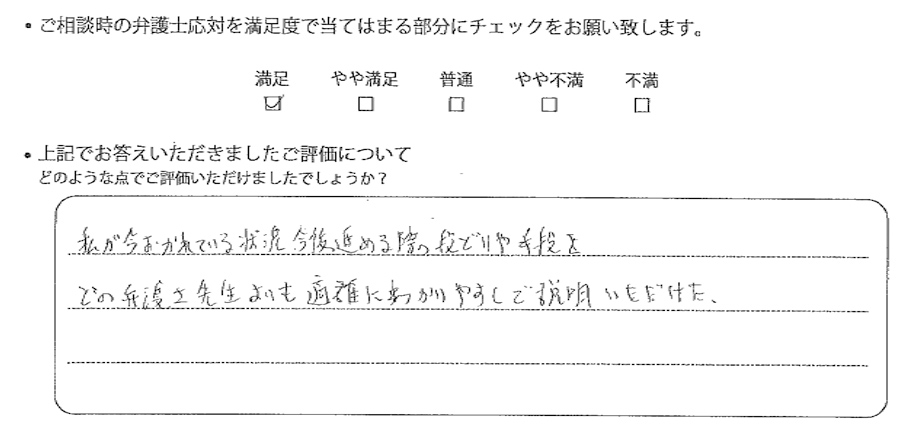 ・ご相談時の弁護士応対を満足度で当てはまる部分にチェックをお願い致します。
満足 やや満足 普通 やや不満 不満
☑ □ □ □ □
・上記でお答えいただきましたご評価について
どのような点でご評価いただけましたでしょうか？
私が今おかれている状況 今後進める際の段どりや手段を
どの弁護士先生よりも適確にわかりやすくご説明いただけた、